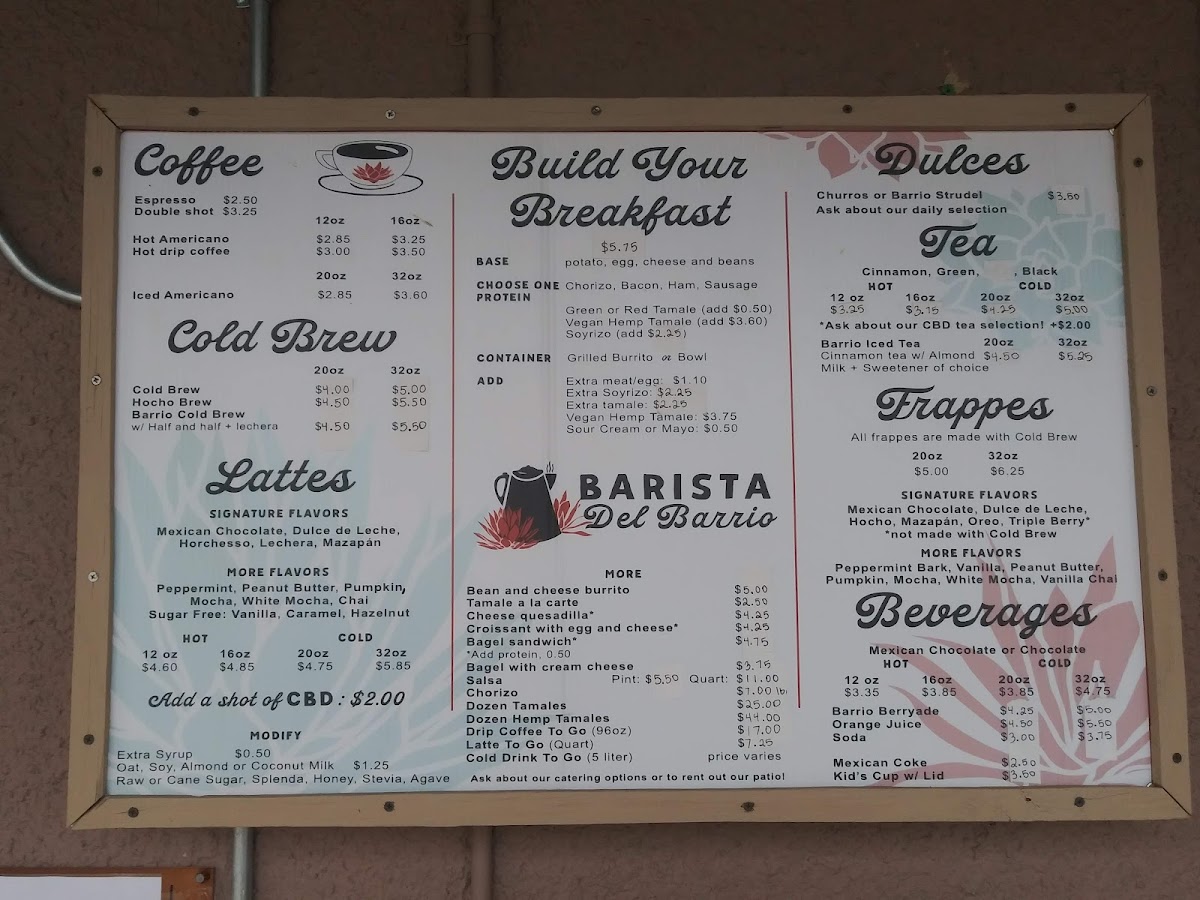 Coffee
Espresso $2.50
Double shot $3.25
12oz 16oz
Hot Americano $2.85 $3.25
Hot drip coffee $3.00 $3.50
20oz 32oz
Iced Americano $2.85 $3.60
Cold Brew
20oz 32oz
Cold Brew $4.00 $5.00
Hocho Brew $4.50 $5.50
Barrio Cold Brew
w/ Half and half + lechera $4.50 $5.50
Lattes
SIGNATURE FLAVORS
Mexican Chocolate, Dulce de Leche,
Horchesso, Lechera, Mazapán
MORE FLAVORS
Peppermint, Peanut Butter, Pumpkin,
Mocha, White Mocha, Chai
Sugar Free: Vanilla, Caramel, Hazelnut
HOT COLD
12 oz 16oz 20oz 32oz
$4.60 $4.85 $4.75 $5.85
Add a shot of CBD : $2.00
MODIFY
Extra Syrup $0.50
Oat, Soy, Almond or Coconut Milk $1.25
Raw or Cane Sugar, Splenda, Honey, Stevia, Agave
Build Your
Breakfast
$5.75
BASE potato, egg, cheese and beans
CHOOSE ONE Chorizo, Bacon, Ham, Sausage
PROTEIN
Green or Red Tamale (add $0.50)
Vegan Hemp Tamale (add $3.60)
Soyrizo (add $2.25)
CONTAINER Grilled Burrito or Bowl
ADD Extra meat/egg: $1.10
Extra Soyrizo: $2.25
Extra tamale: $2.25
Vegan Hemp Tamale: $3.75
Sour Cream or Mayo: $0.50
BARISTA
Del Barrio
MORE
Bean and cheese burrito $5.00
Tamale a la carte $2.50
Cheese quesadilla* $4.25
Croissant with egg and cheese* $4.25
Bagel sandwich* $4.75
*Add protein, 0.50
Bagel with cream cheese $3.75
Salsa Pint: $5.50 Quart: $11.00
Chorizo $7.00 lb
Dozen Tamales $25.00
Dozen Hemp Tamales $44.00
Drip Coffee To Go (96oz) $17.00
Latte To Go (Quart) $7.25
Cold Drink To Go (5 liter) price varies
Ask about our catering options or to rent out our patio!
Dulces
Churros or Barrio Strudel $3.50
Ask about our daily selection
Tea
Cinnamon, Green, , Black
HOT COLD
12 oz 16oz 20oz 32oz
$3.25 $3.75 $4.25 $5.00
*Ask about our CBD tea selection! +$2.00
Barrio Iced Tea 20oz 32oz
Cinnamon tea w/ Almond $4.50 $5.25
Milk + Sweetener of choice
Frappes
All frappes are made with Cold Brew
20oz 32oz
$5.00 $6.25
SIGNATURE FLAVORS
Mexican Chocolate, Dulce de Leche,
Hocho, Mazapán, Oreo, Triple Berry*
*not made with Cold Brew
MORE FLAVORS
Peppermint Bark, Vanilla, Peanut Butter,
Pumpkin, Mocha, White Mocha, Vanilla Chai
Beverages
Mexican Chocolate or Chocolate
HOT COLD
12 oz 16oz 20oz 32oz
$3.35 $3.85 $3.85 $4.75
Barrio Berryade $4.25 $5.00
Orange Juice $4.50 $5.50
Soda $3.00 $3.75
Mexican Coke $2.50
Kid's Cup w/ Lid $3.50